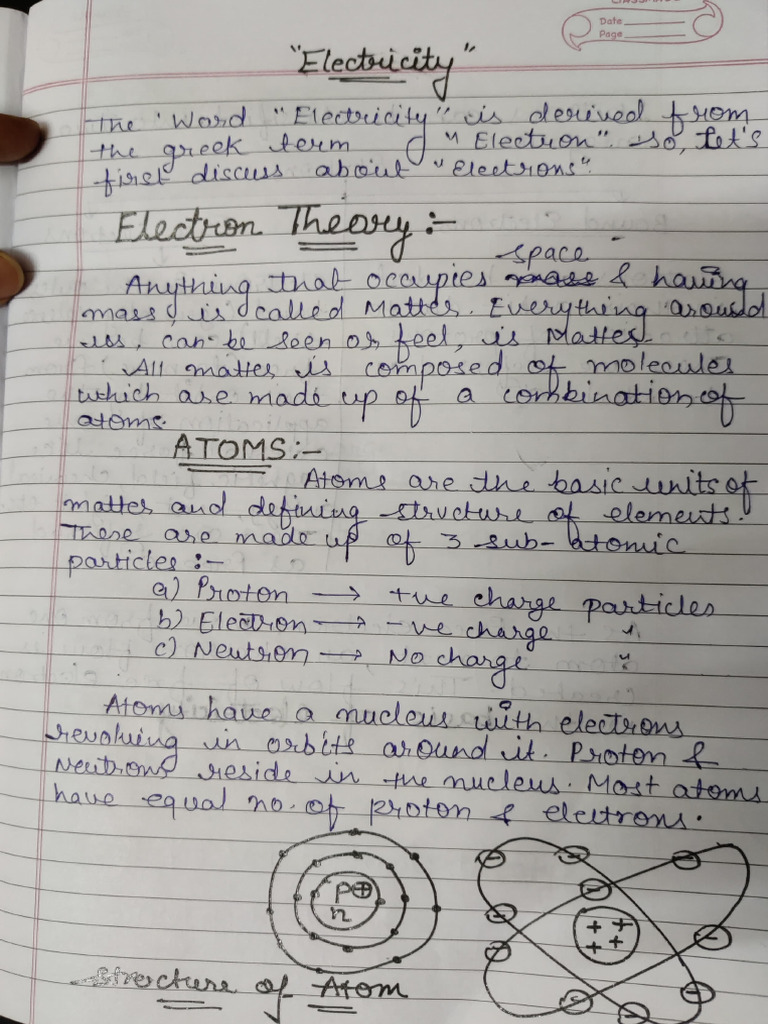 Date
Page
"Electricity"
The Word "Electricity" is derived from
the greek term "Electron". So, Let's
first discuss about "Electrons".
Electron Theory :-
space
Anything that occupies mass & having
mass, is called Matter. Everything around
us, can be seen or feel, is Matter.
All matter is composed of molecules
which are made up of a combination of
atoms.
ATOMS :-
Atoms are the basic units of
matter and defining structure of elements.
These are made up of 3 sub-atomic
particles :-
a) Proton → +ve charge particles
b) Electron → -ve charge "
c) Neutron → No charge "
Atoms have a nucleus with electrons
revolving in orbits around it. Proton &
Neutrons reside in the nucleus. Most atoms
have equal no. of proton & electrons.
P+
n
+ +
+ +
Structure of Atom